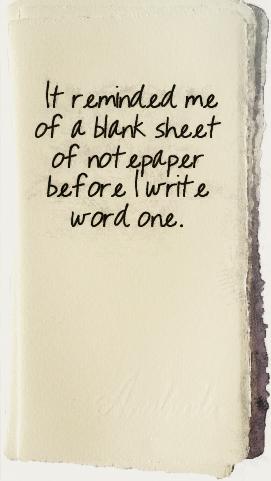 It reminded me
of a blank sheet
of notepaper
before I write
word one.